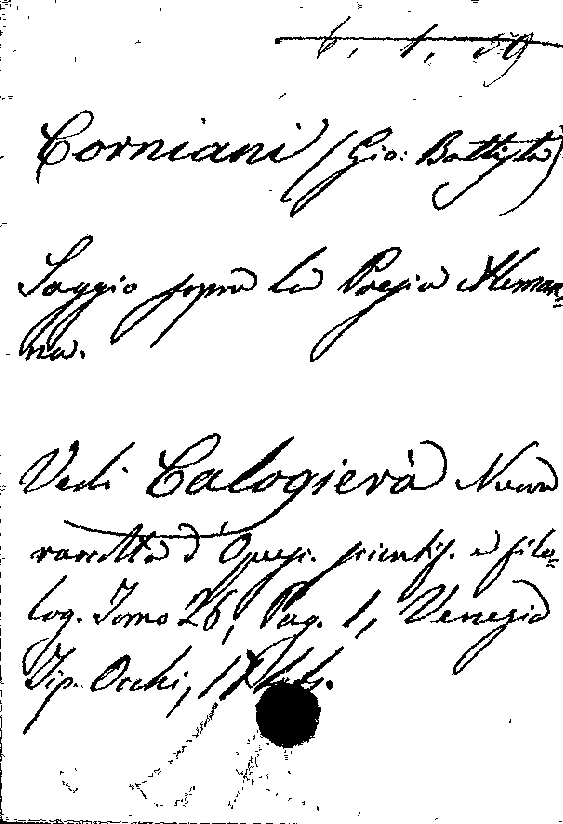 6, 1, 59
Corniani (Gio: Battista)
Saggio sopra la Poesia Aleman=
na.
Vedi Calogierà Nuova
raccolta d'Opusc. scientif. e filo=
log. Tomo 26, Pag. 1, Venezia
Tip. Occhi,